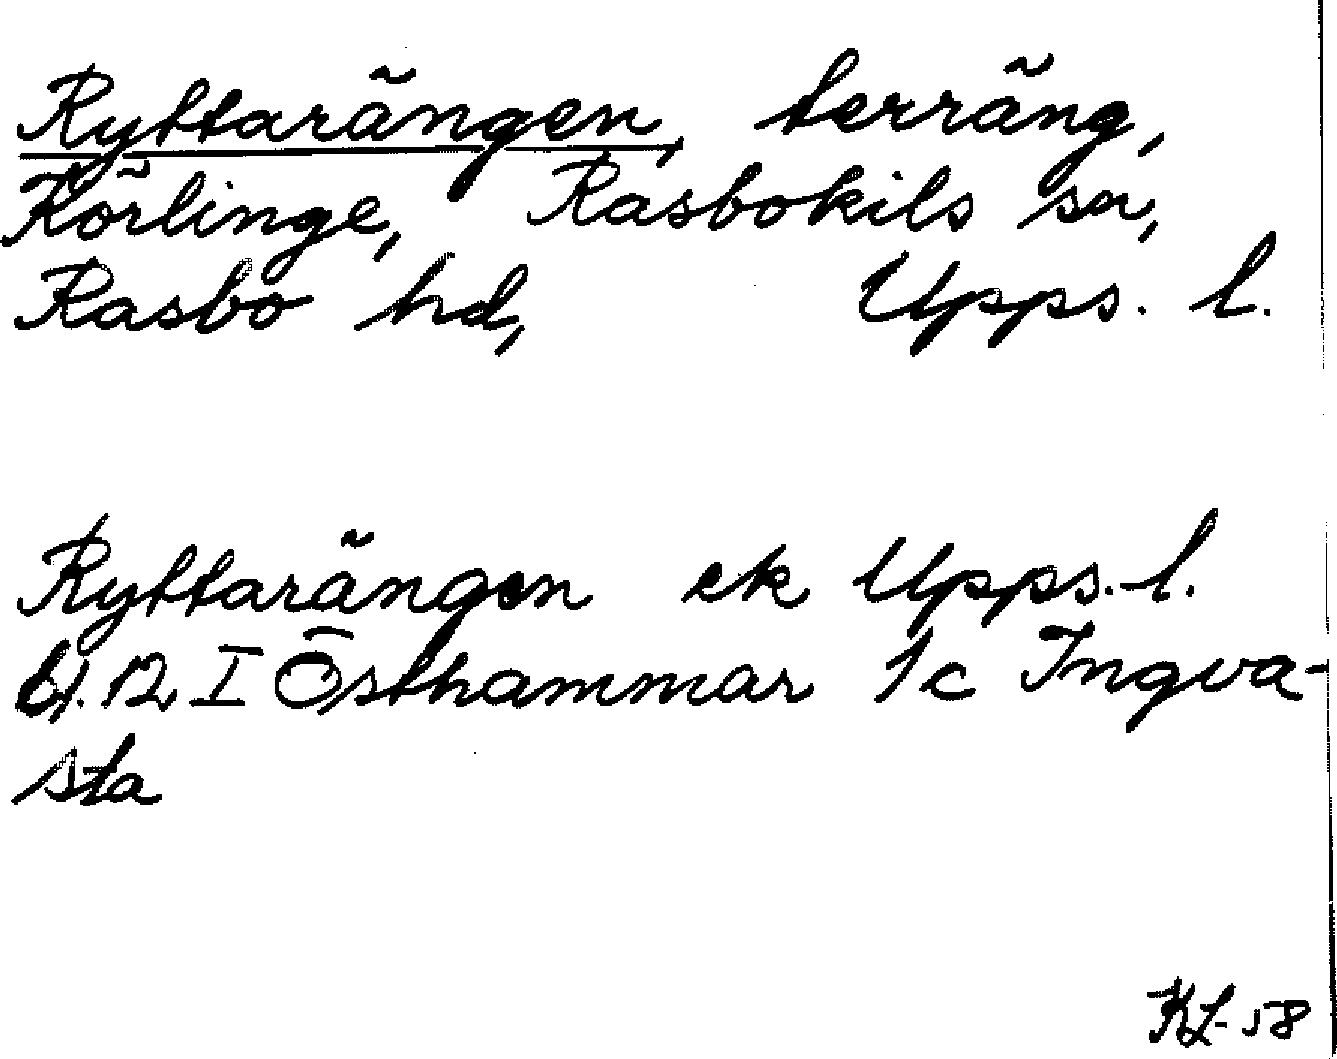 Ryttarängen, terräng,
Körlinge, Rasbokils sn,
Rasbo hd, Upps. l.
Ryttarängen ek Upps.-l.
bl. 12 I Östhammar 1c Ingva-
sta
KL-58